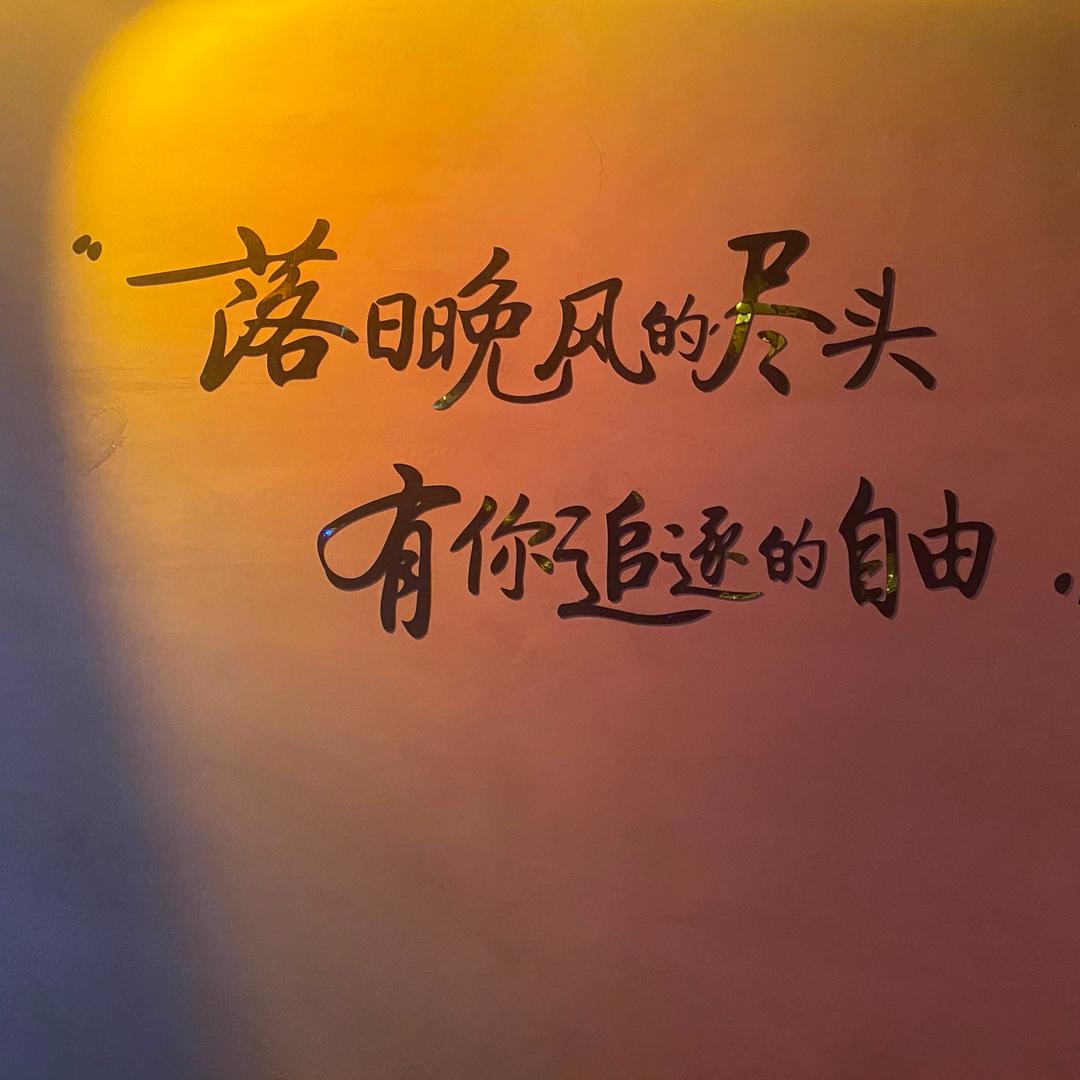 “落日晚风的尽头
有你追逐的自由 ·